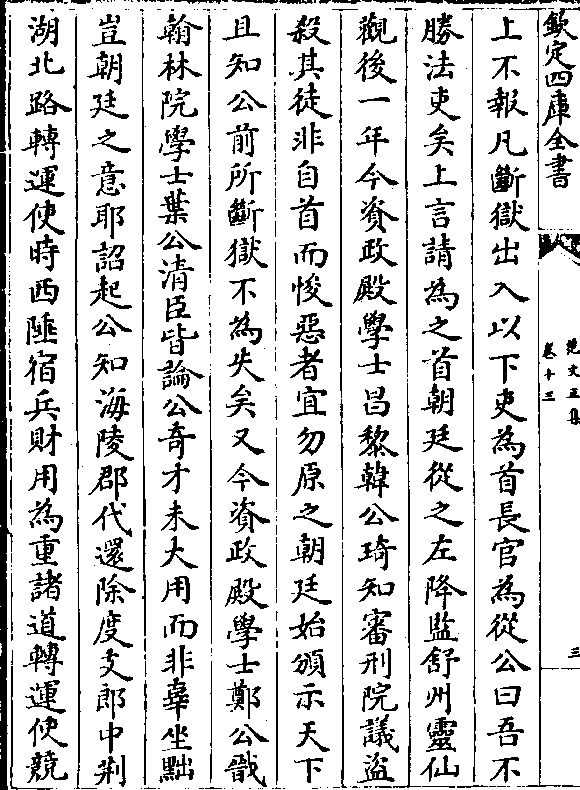 欽定四庫全書
范文正集
卷十三
三
上不報凡斷獄出入以下吏為首長官為從公曰吾不
勝法吏矣上言請為之首朝廷從之左降監舒州靈仙
觀後一年今資政殿學士昌黎韓公琦知審刑院議盜
殺其徒非自首而悛惡者宜勿原之朝廷始頒示天下
且知公前所斷獄不為失矣又今資政殿學士鄭公戩
翰林院學士葉公清臣皆論公竒才未大用而非辜坐黜
豈朝廷之意耶詔起公知海陵郡代還除度支郎中荆
湖北路轉運使時西陲宿兵財用為重諸道轉運使競